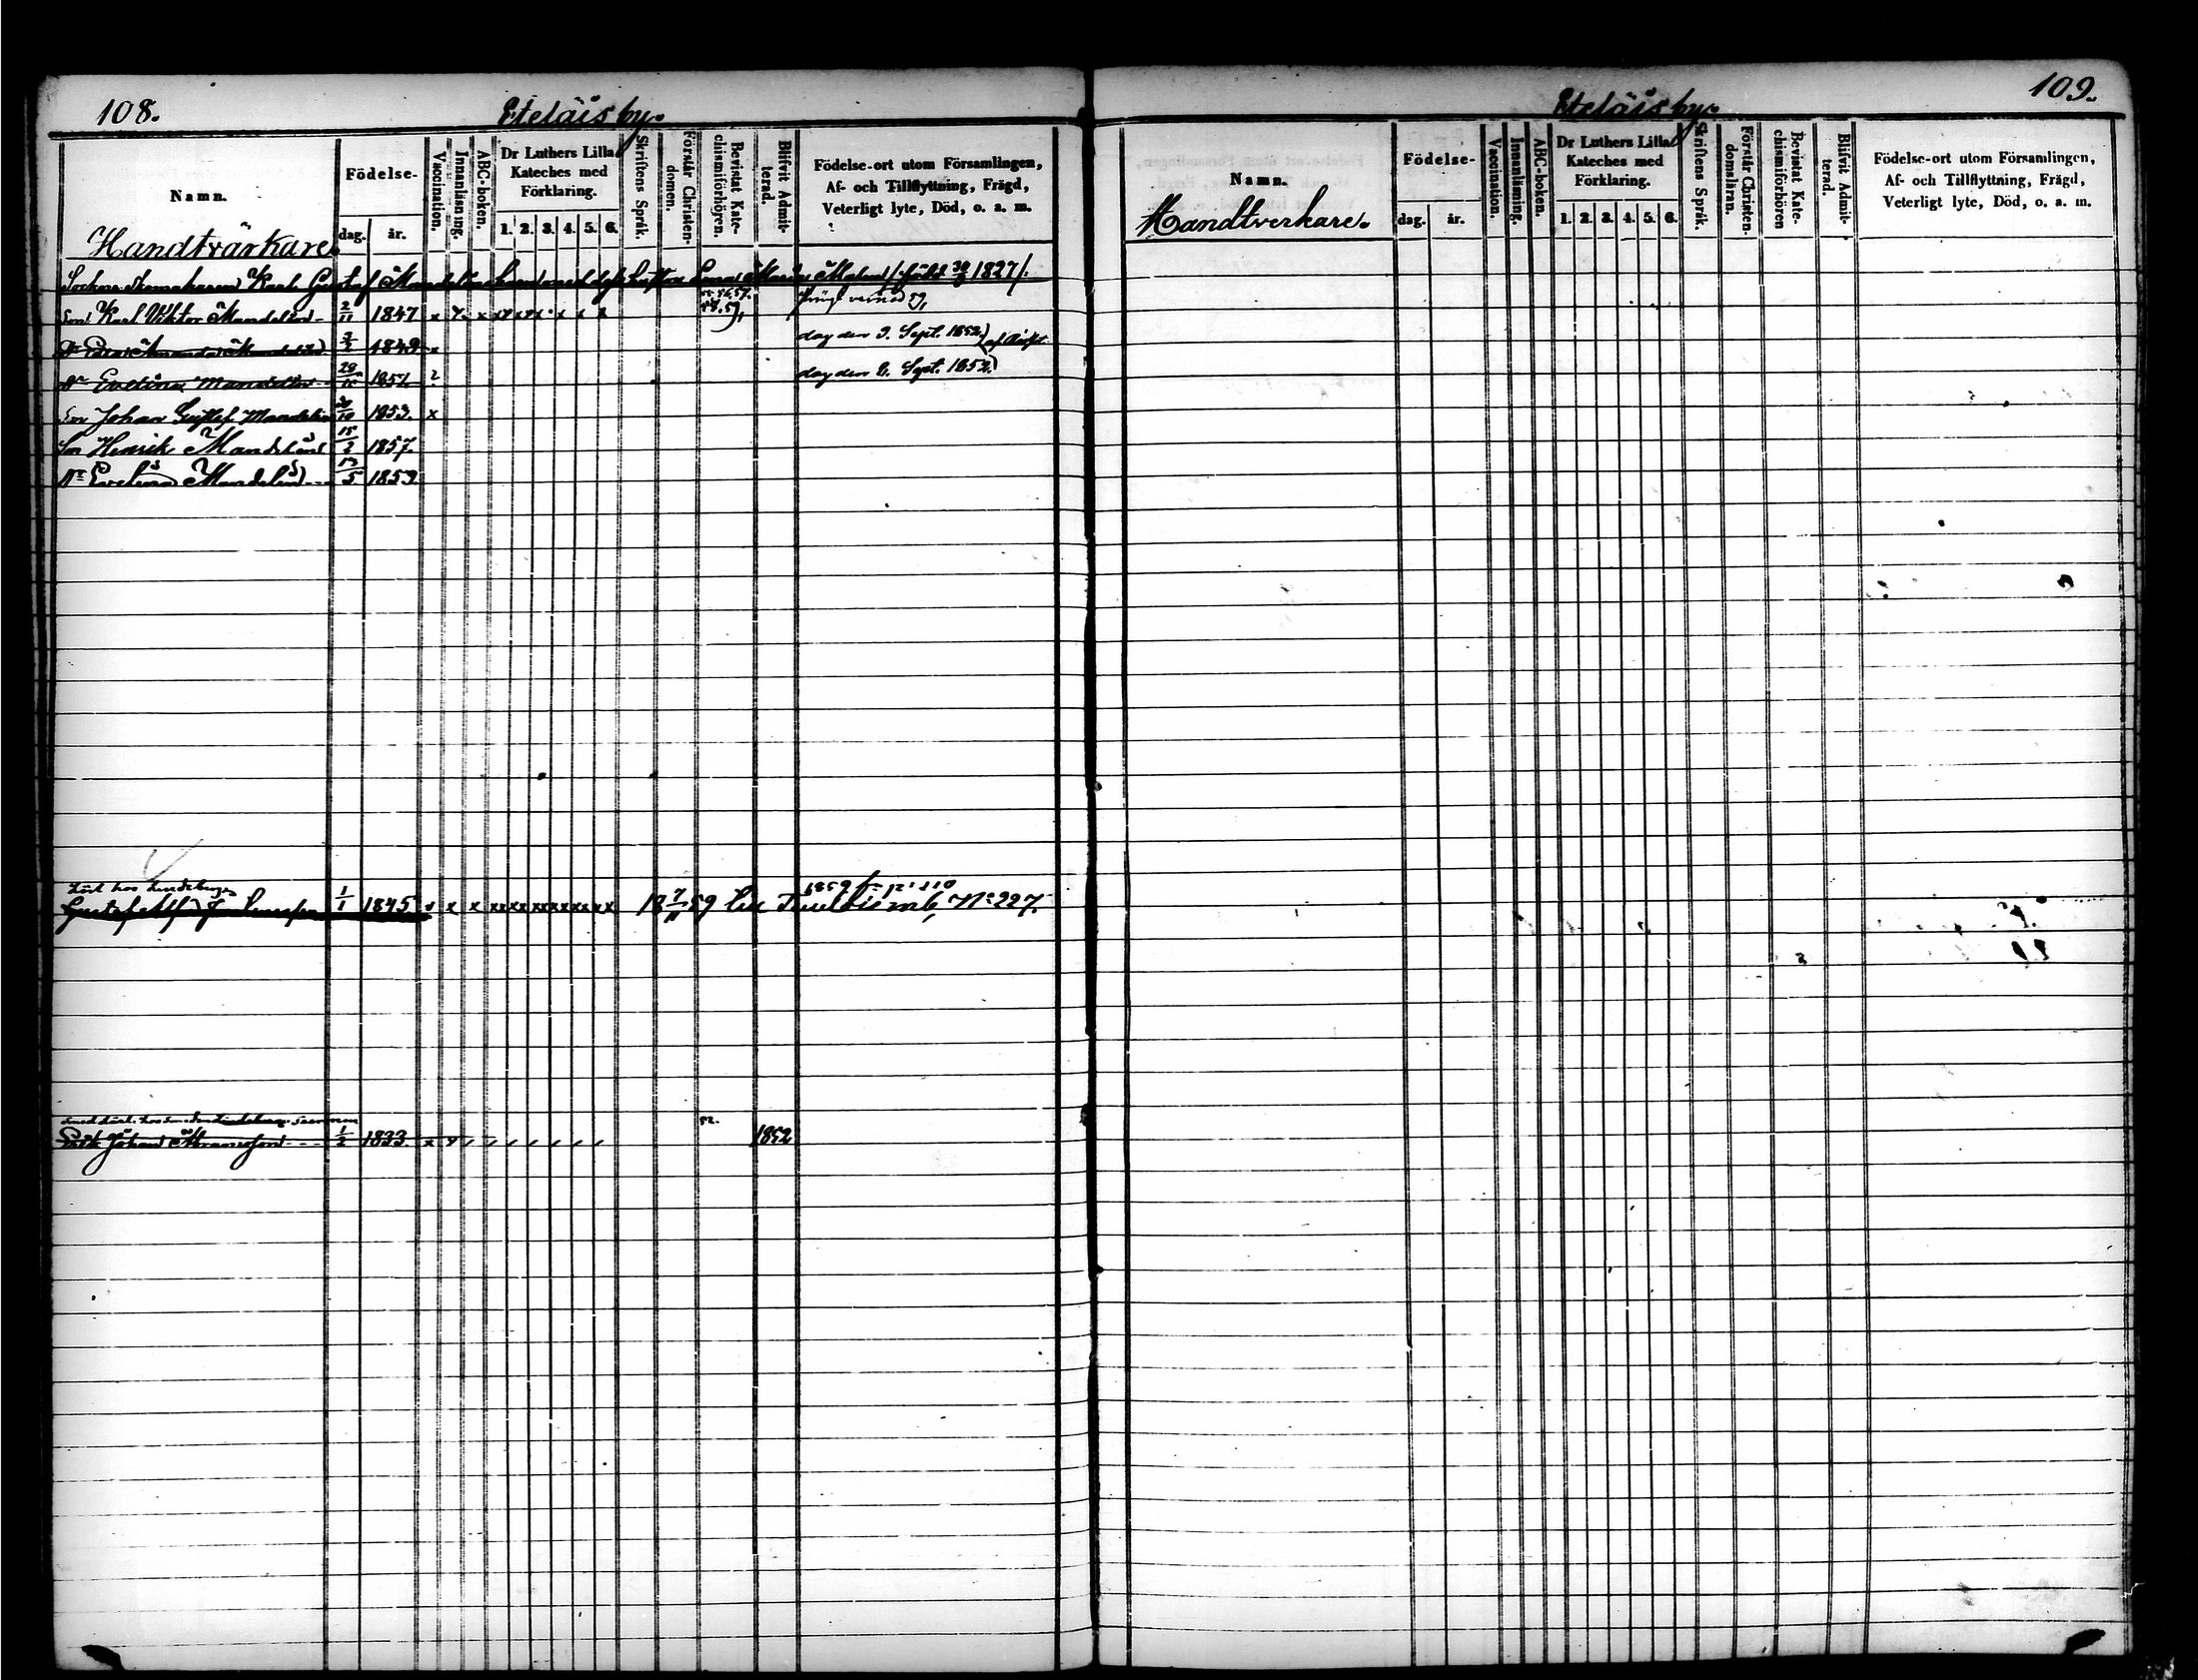 108.
Eteläis by.
Namn.
Födelse-
dag.
år.
Vaccination.
Innanläsning.
ABC-boken.
Dr Luthers Lilla
Kateches med
Förklaring.
1. 2. 3. 4. 5. 6.
Skriftens Språk.
Förstår Christen-
domen.
Bevistat Kate-
chismiförhören.
Blifvit Admit-
terad.
Födelse-ort utom Församlingen,
Af- och Tillflyttning, Frägd,
Veterligt lyte, Död, o. a. m.
Handtvärkare
Sockne Skomakaren Karl Gustaf Mandelin 1827/.
Son Karl Viktor Mandelin 2/11 1847 x x x
3/2 1849 x dog den 3. Sept. 1852.)
Dr Evelina Mandelin 1851 ? dog den 8. Sept. 1852.)
Son Johan Gustaf Mandelin 1853. x
Son Henrik Mandelin 15/2 1857.
Dr Evelina Mandelin 13/5 1859
Gustaf 1/1 1845. x x x xx xx xx xx xx xx 18 7/11 59 N:o 227.
52.
Erik Johan Abramsson 1/2 1833 x 1852
109.
Eteläis by.
Namn.
Handtverkare.
Födelse-
dag.
år.
Vaccination.
Innanläsning.
ABC-boken.
Dr Luthers Lilla
Kateches med
Förklaring.
1. 2. 3. 4. 5. 6.
Skriftens Språk.
Förstår Christen-
domsläran.
Bevistat Kate-
chismiförhören
Blifvit Admit-
terad.
Födelse-ort utom Församlingen,
Af- och Tillflyttning, Frägd,
Veterligt lyte, Död, o. a. m.